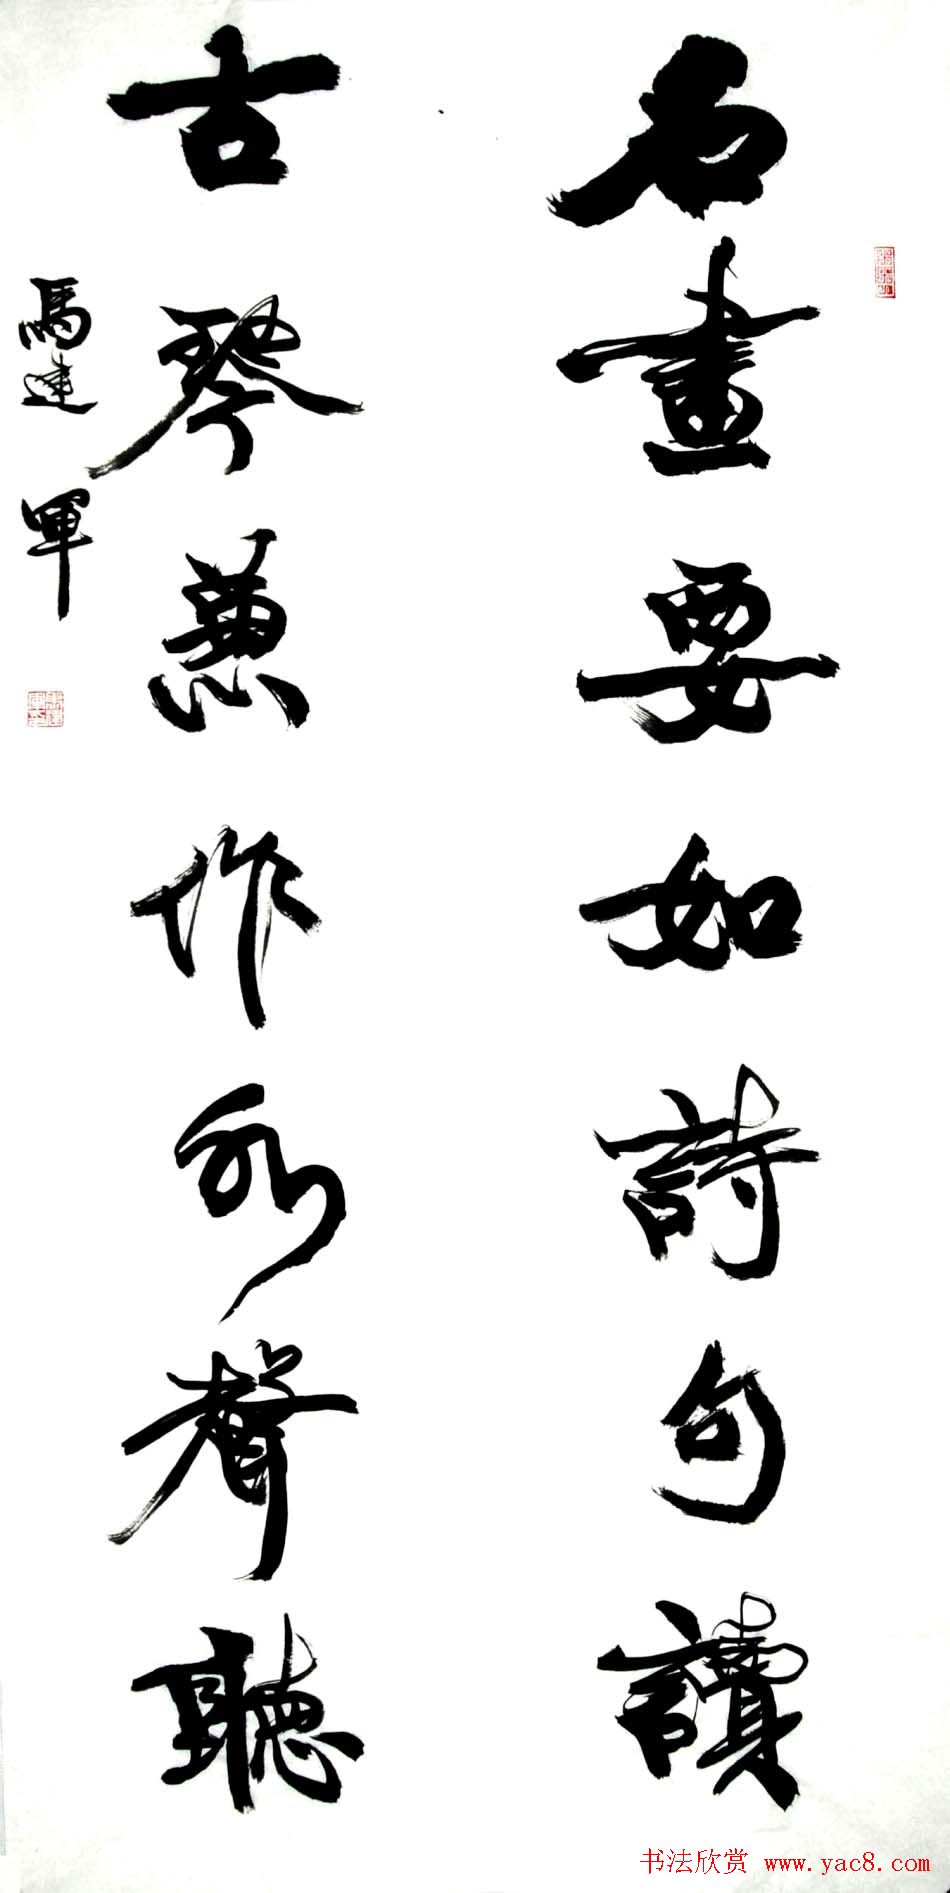 名畫要如詩句讀
古琴兼作水聲聽
馮建軍
书法欣赏 www.yac8.com